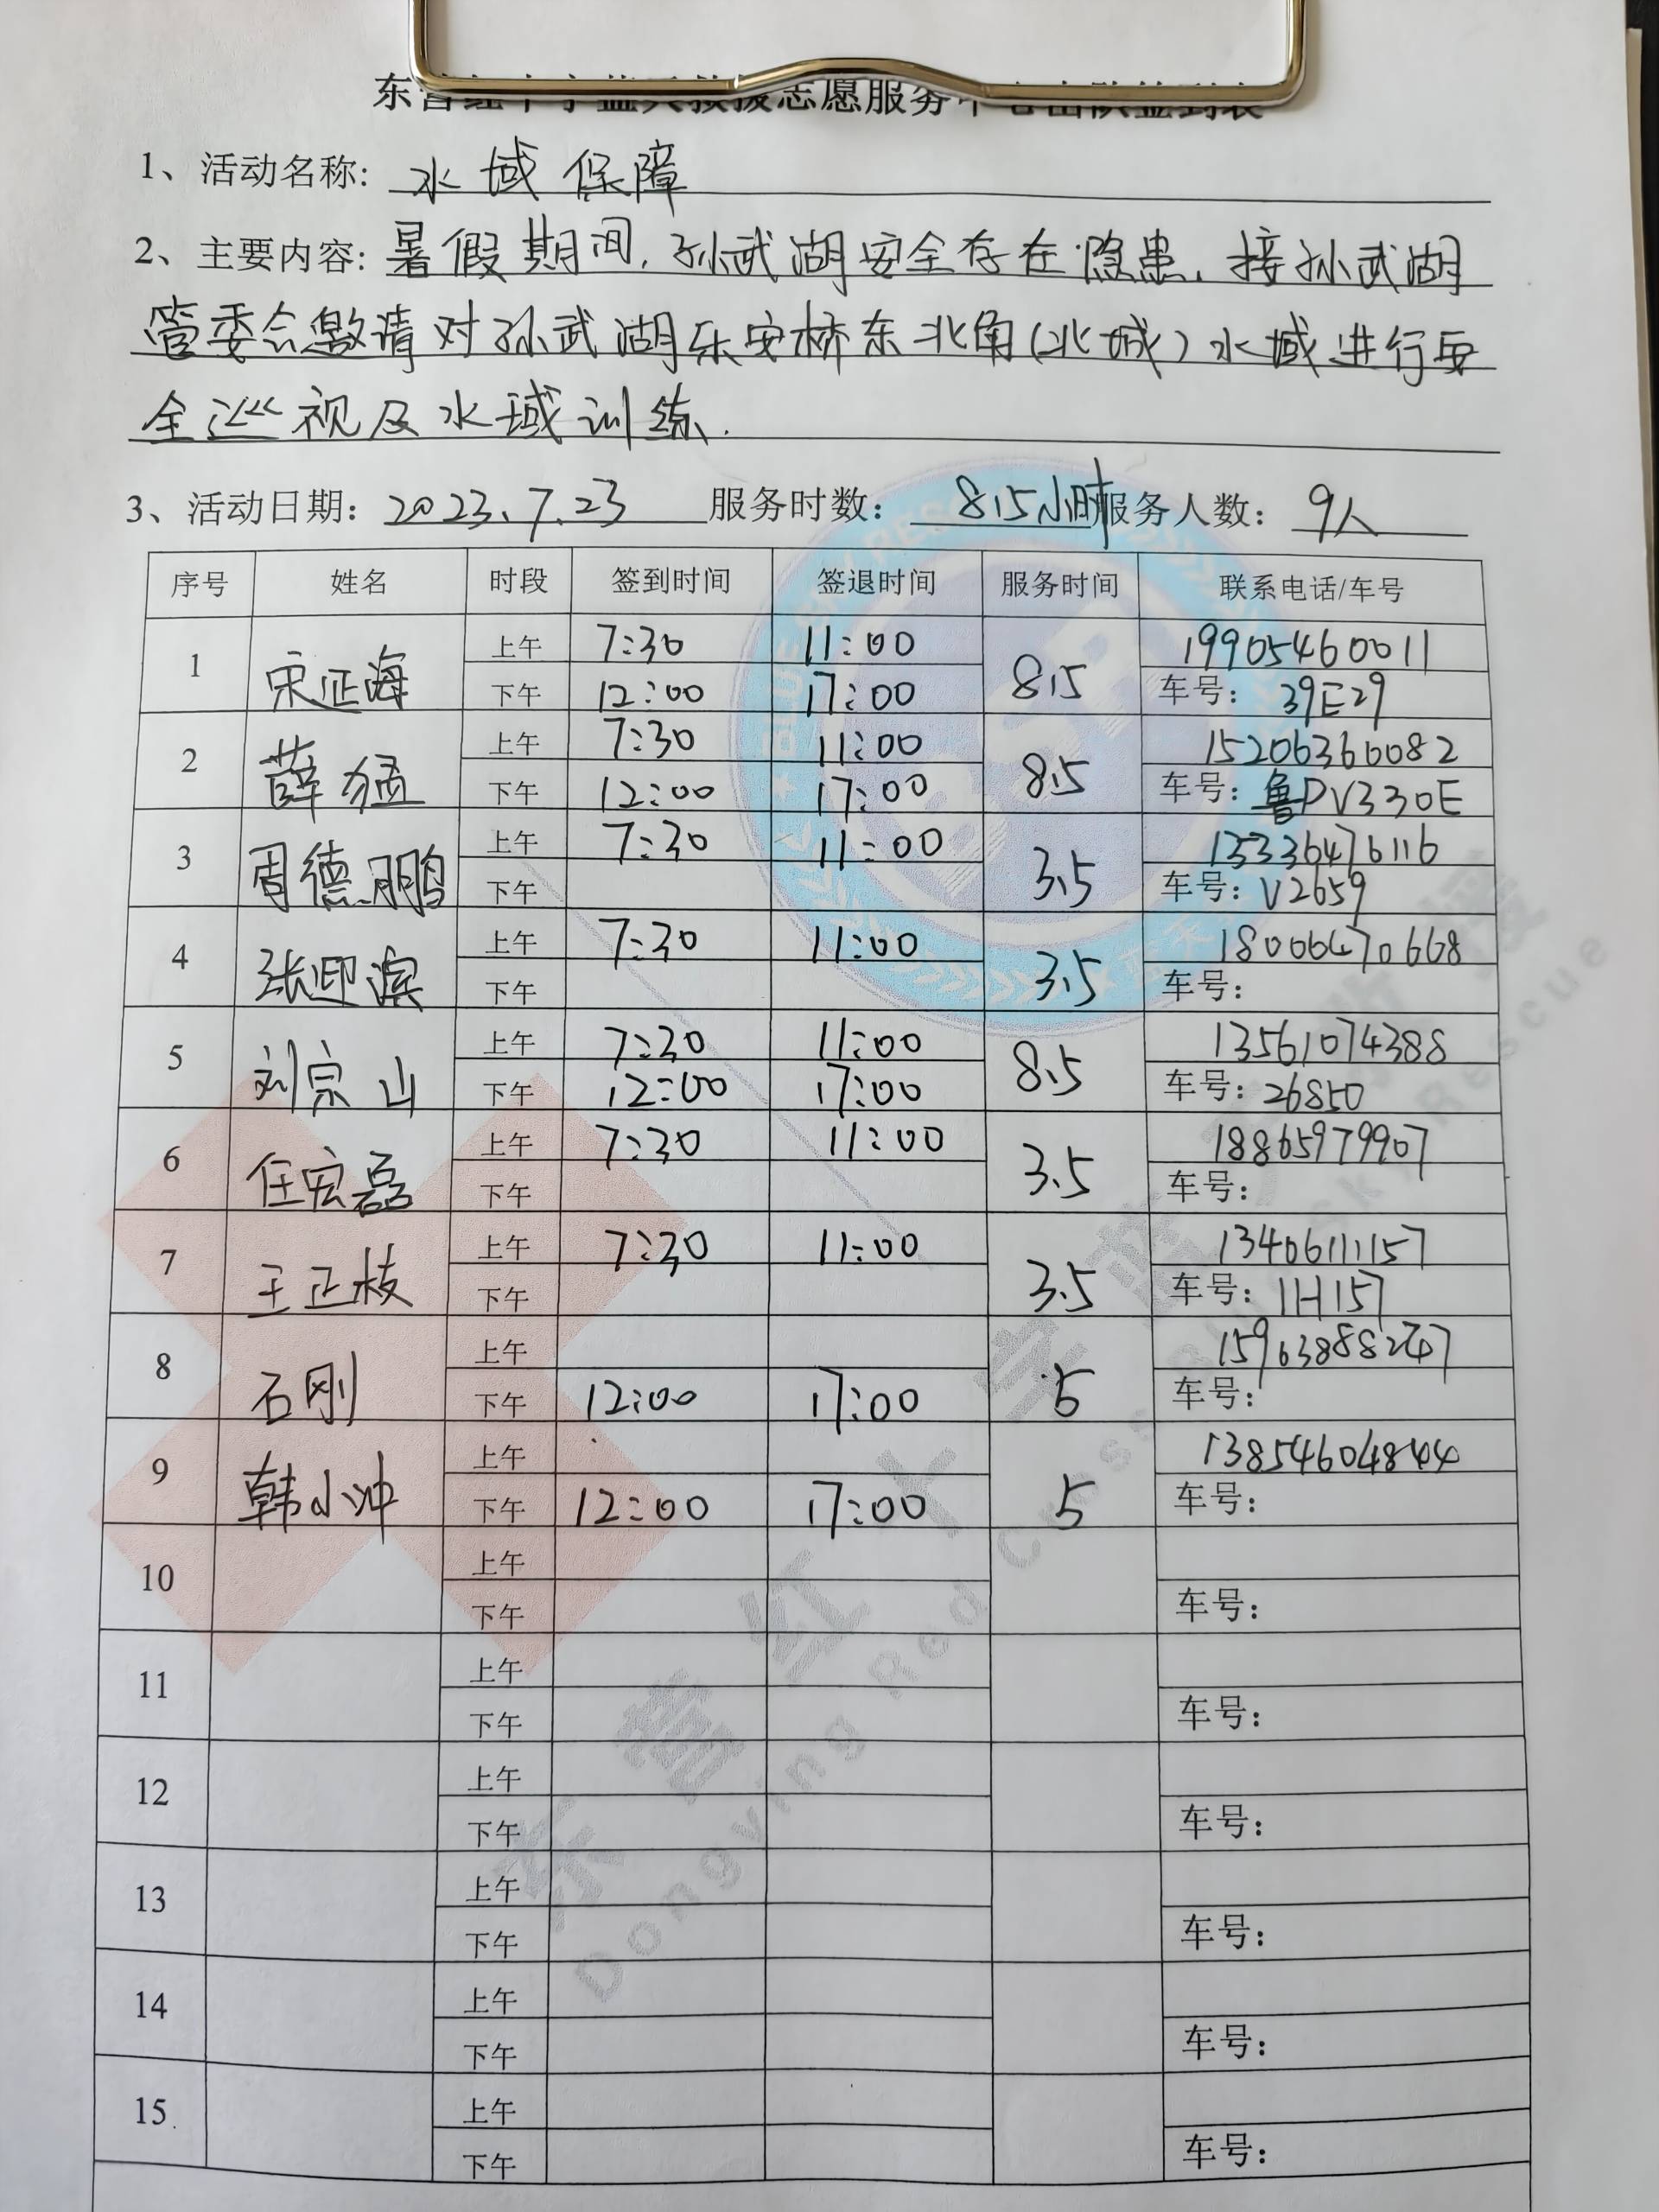 东营红十字蓝天救援志愿服务中心出队签到表
1、活动名称: 水域保障
2、主要内容: 暑假期间,孙武湖安全存在隐患,接孙武湖
管委会邀请对孙武湖乐安桥东北角(北城)水域进行安
全巡视及水域训练.
3、活动日期: 2023.7.23 服务时数: 8.5小时 服务人数: 9人
序号 姓名 时段 签到时间 签退时间 服务时间 联系电话/车号
1 宋正海 上午 7:30 11:00 8.5 19905460011
下午 12:00 17:00 车号: 39E29
2 薛猛 上午 7:30 11:00 8.5 15206360082
下午 12:00 17:00 车号: 鲁PV330E
3 周德鹏 上午 7:30 11:00 3.5 13336476116
下午 车号: V2659
4 张迎滨 上午 7:30 11:00 3.5 18006470668
下午 车号:
5 刘宗山 上午 7:30 11:00 8.5 13561074388
下午 12:00 17:00 车号: 26850
6 任宏磊 上午 7:30 11:00 3.5 18865979907
下午 车号:
7 王正枝 上午 7:30 11:00 3.5 13406111157
下午 车号: 1H157
8 石刚 上午 5
下午 12:00 17:00 车号:
9 韩小冲 上午 5 13854604844
下午 12:00 17:00 车号:
10 上午
下午 车号:
11 上午
下午 车号:
12 上午
下午 车号:
13 上午
下午 车号:
14 上午
下午 车号:
15 上午
下午 车号:
东营红十字蓝天救援
Dongying Red Cross Blue Sky Rescue